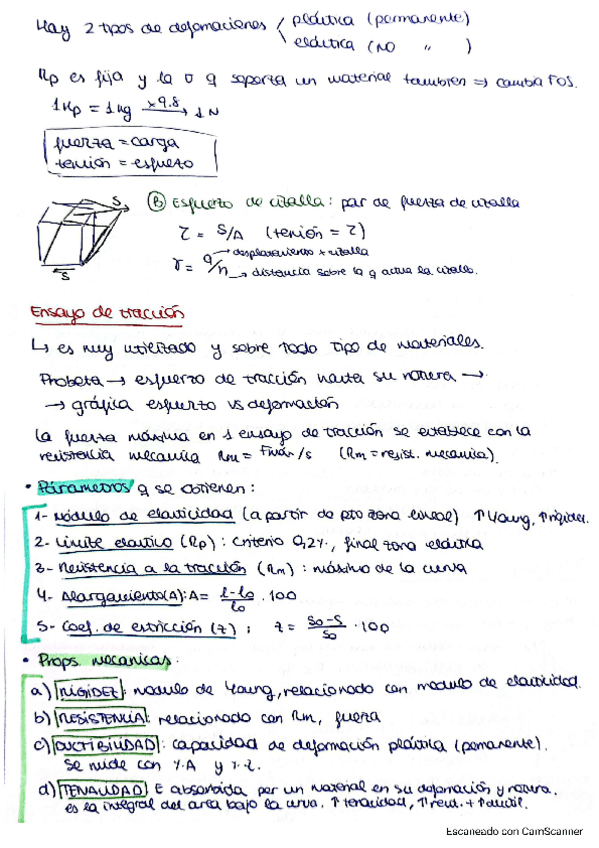 Hay 2 tipos de deformaciones plástica (permanente)
elástica (NO " )
Kp es fija y la σ q soporta un material también => cambia Fos.
1Kp = 1kg ×9.8→ 1N
fuerza = carga
tensión = esfuerzo
(B) Esfuerzo de cizalla: par de fuerza de cizalla
S
τ = S/A (tensión = τ)
→ desplazamiento x cizalla
γ = a/h → distancia sobre la q actúa la cizalla.
S
Ensayo de tracción
↳ es muy utilizado y sobre todo tipo de materiales.
Probeta → esfuerzo de tracción hasta su rotura →
→ gráfica esfuerzo vs deformación
La fuerza máxima en 1 ensayo de tracción se establece con la
resistencia mecánica Rm = Fmáx/S (Rm = resist. mecánica).
• Parámetros q se obtienen:
1- Módulo de elasticidad (a partir de pto zona lineal) ↑Young, ↑rigidez.
2- Límite elástico (Rp): criterio 0,2%, final zona elástica
3- Resistencia a la tracción (Rm): máximo de la curva
4- Alargamiento(A): A = l-lo/lo · 100
5- Coef. de estricción (Z): Z = So-S/So · 100
• Props. mecánicas:
a) RIGIDEZ: módulo de Young, relacionado con módulo de elasticidad.
b) RESISTENCIA: relacionado con Rm, fuerza
c) DUCTIBILIDAD: capacidad de deformación plástica (permanente).
Se mide con %A y %Z.
d) TENACIDAD: E absorbida por un material en su deformación y rotura.
es la integral del área bajo la curva. ↑tenacidad, ↑resist. + ↑ductil.
Escaneado con CamScanner